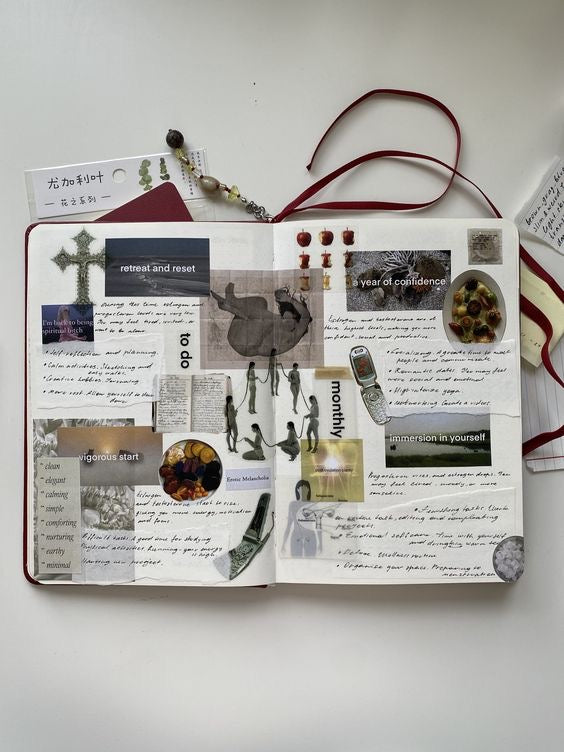 尤加利叶
— 花之系列 —
retreat and reset
During this time estrogen and
progesteron levels are very low.
You may feel tired, or
want to be alone
I'm back to being
spiritual bitch
• Self-reflection and planning.
• Calm activities. Stretching and
easy walks.
• Creative hobbies. Journaling
• More rest. Allow yourself to slow
down.
to do
vigorous start
• clean
• elegant
• calming
• simple
• comforting
• nurturing
• earthy
• minimal
Erotic Melancholia
Estrogen
and testosterone start to rise.
Giving you more energy, motivation
and focus
Difficult tasks. A good time for studying
Physical activities. Running. your energy
is high
Starting new project.
a year of confidence
Estrogen and testosterone are at
their highest levels, making you more
confident, social and productive.
• Socializing. A great time to meet
people and communicate.
• Romantic dates. You may feel
more social and emotional
• High-intense yoga
• Networking. Create a video.
monthly
immersion in yourself
Progesteron rises, and estrogen drops. You
may feel tired, moody, or more
sensitive.
• Finishing tasks. Work
on detail tasks, editing and completing
projects.
• Emotional self care. Time with yourself
and drinking warm
• Deluxe wellness routine
• Organize your space. Preparing to
menstruation